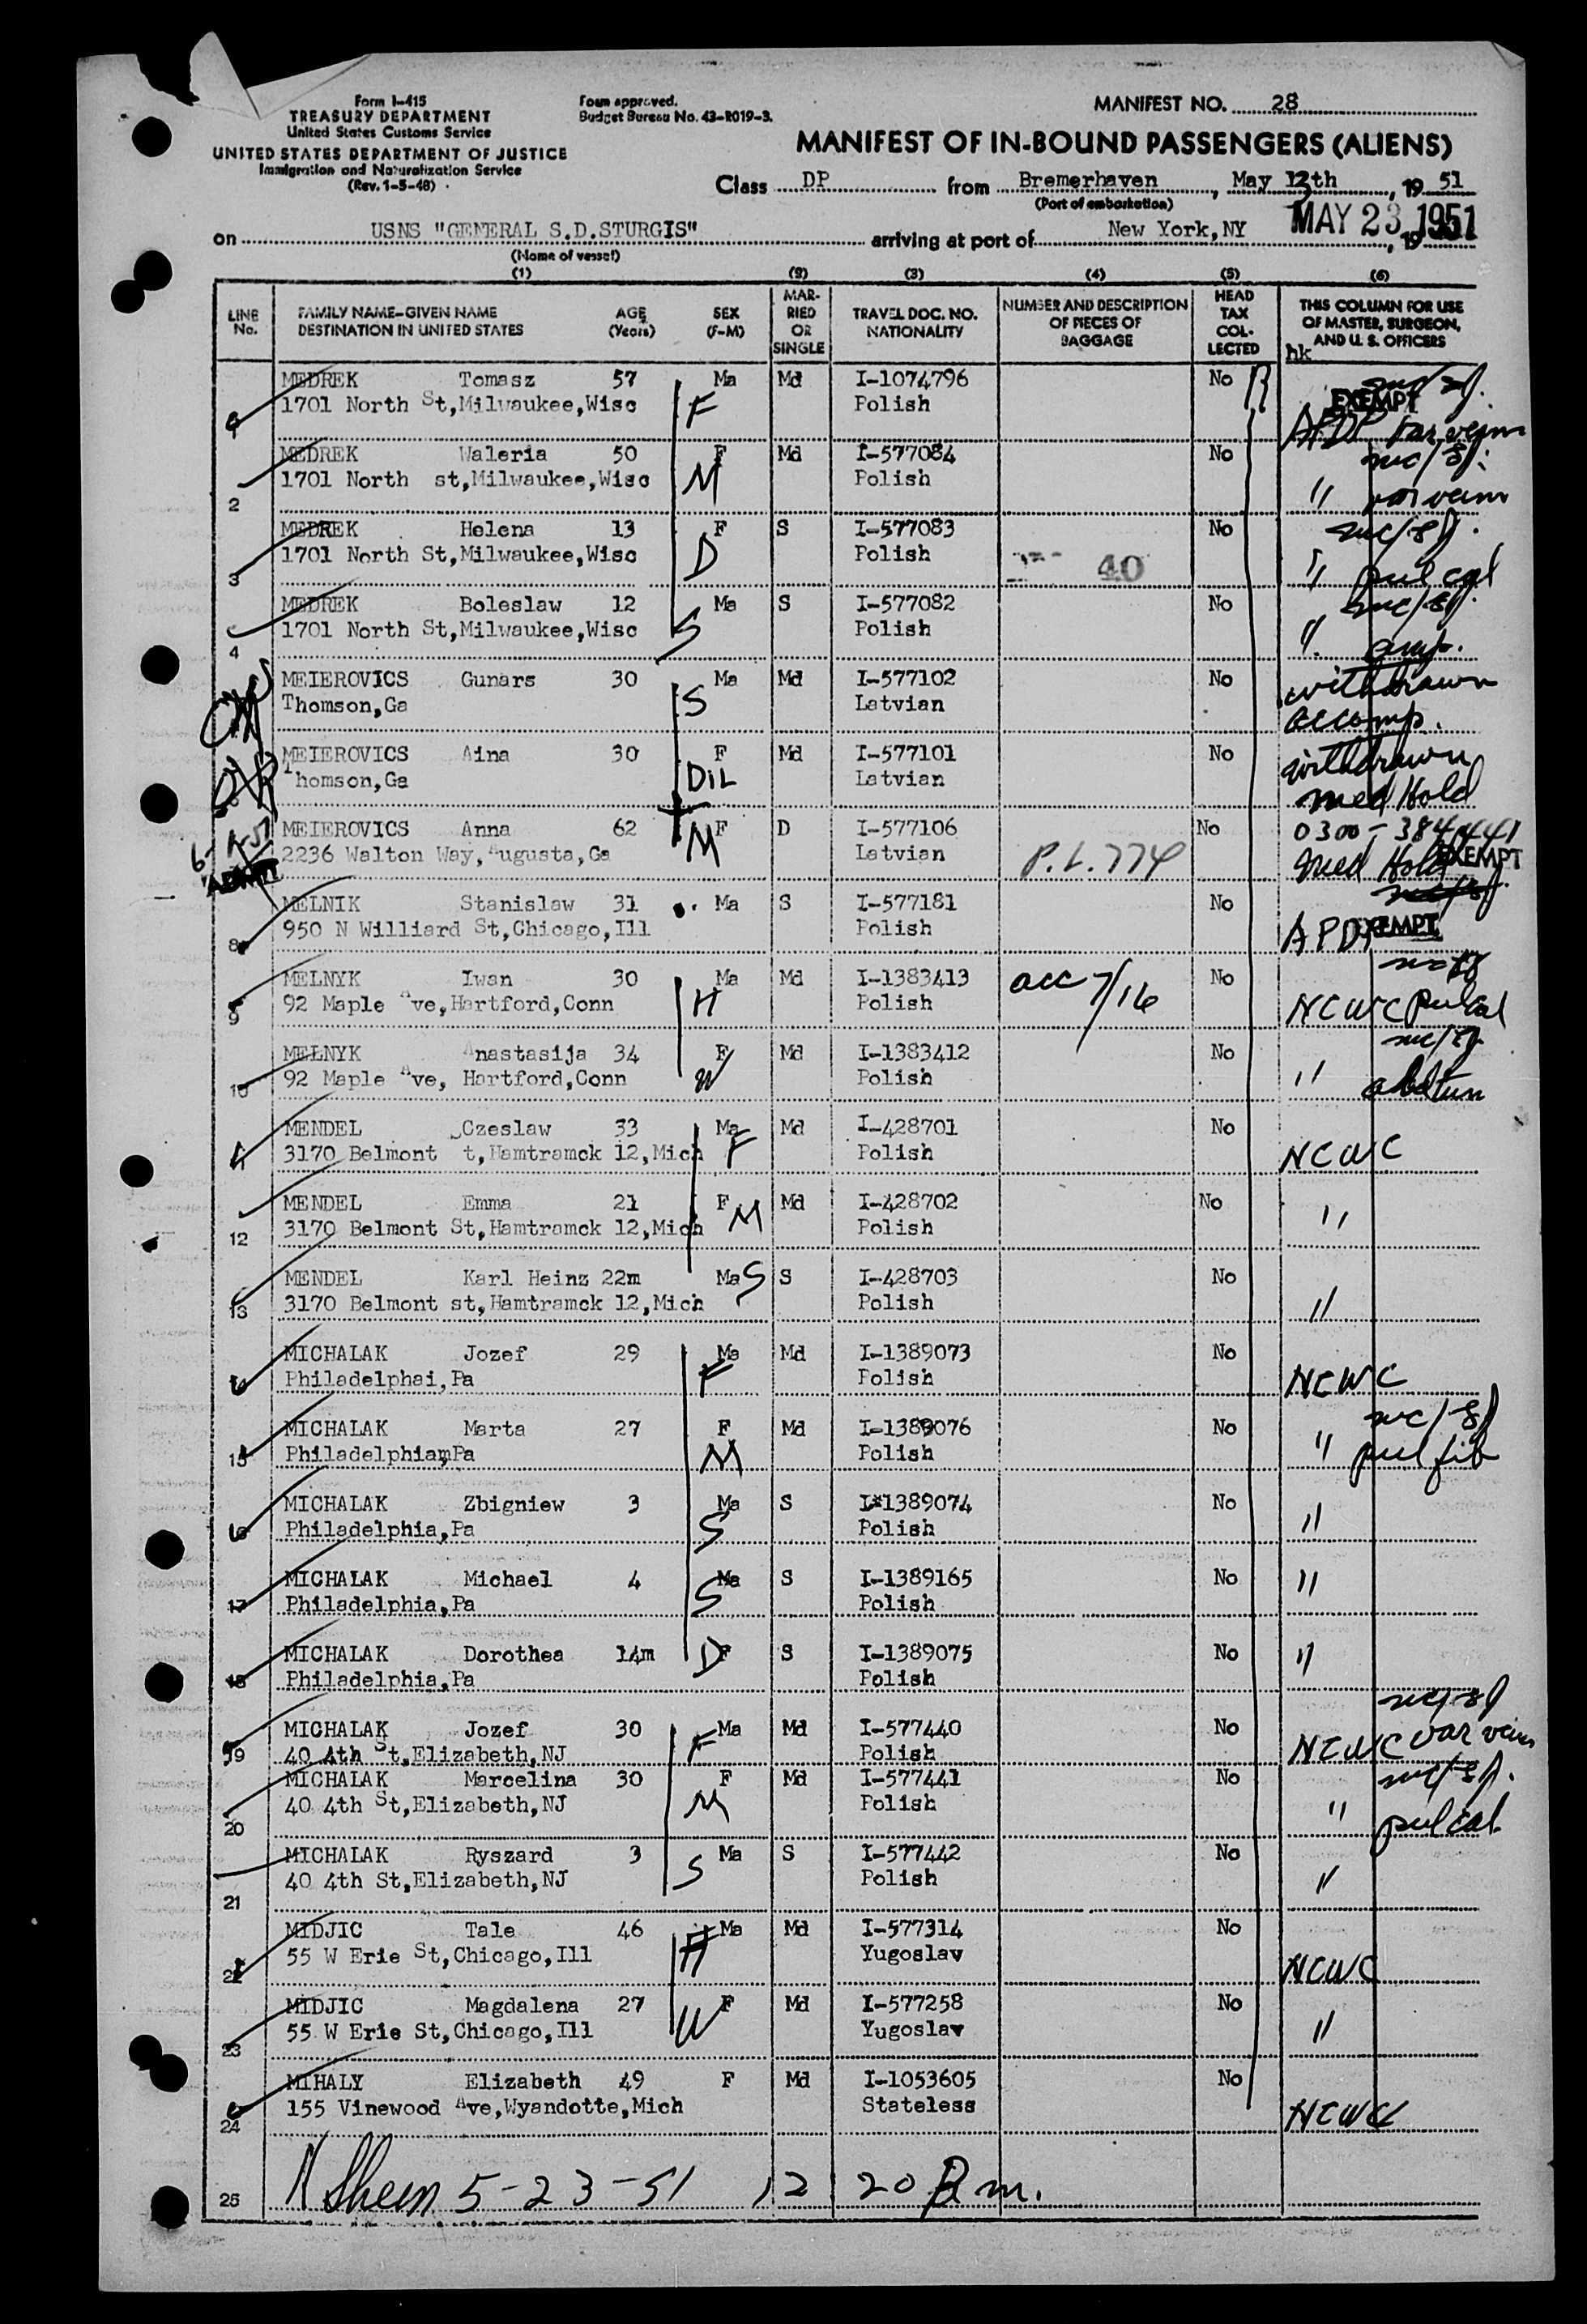 Form I-415
TREASURY DEPARTMENT
United States Customs Service
UNITED STATES DEPARTMENT OF JUSTICE
Immigration and Naturalization Service
(Rev. 1-5-48)
Form approved.
Budget Bureau No. 43-R019-3.
MANIFEST NO. 28
MANIFEST OF IN-BOUND PASSENGERS (ALIENS)
Class DP from Bremerhaven, May 13th, 19 51
(Port of embarkation)
on USNS "GENERAL S.D.STURGIS" arriving at port of New York,NY MAY 23 1951, 19
(Name of vessel)
(1) (2) (3) (4) (5) (6)
LINE No. FAMILY NAME-GIVEN NAME DESTINATION IN UNITED STATES AGE (Years) SEX (F-M) MARRIED OR SINGLE TRAVEL DOC. NO. NATIONALITY NUMBER AND DESCRIPTION OF PIECES OF BAGGAGE HEAD TAX COLLECTED THIS COLUMN FOR USE OF MASTER, SURGEON, AND U. S. OFFICERS
hk
MEDREK Tomasz 57 Ma Md I-1074796 No EXEMPT
1701 North St,Milwaukee,Wisc F Polish APDP var vein
MEDREK Waleria 50 F Md I-577084 No
2 1701 North st,Milwaukee,Wisc M Polish " var vein
MEDREK Helena 13 F S I-577083 No
3 1701 North St,Milwaukee,Wisc D Polish 40 " pul cal
MEDREK Boleslaw 12 Ma S I-577082 No
4 1701 North St,Milwaukee,Wisc S Polish "
MEIEROVICS Gunars 30 Ma Md I-577102 No withdrawn
Thomson,Ga S Latvian accomp.
MEIEROVICS Aina 30 F Md I-577101 No withdrawn
Thomson,Ga DIL Latvian med Hold
MEIEROVICS Anna 62 F D I-577106 No 0300-384441
2236 Walton Way,Augusta,Ga M Latvian P.L.774 med Hold EXEMPT
ADMIT
MELNIK Stanislaw 31 Ma S I-577181 No
8 950 N Williard St,Chicago,Ill Polish APDP EXEMPT
MELNYK Iwan 30 Ma Md I-1383413 acc 7/16 No
9 92 Maple Ave,Hartford,Conn H Polish NCWC pul cal
MELNYK Anastasija 34 F Md I-1383412 No
10 92 Maple Ave, Hartford,Conn W Polish "
MENDEL Czeslaw 33 Ma Md I-428701 No
11 3170 Belmont t,Hamtramck 12,Mich F Polish NCWC
MENDEL Emma 21 F Md I-428702 No
12 3170 Belmont St,Hamtramck 12,Mich M Polish "
MENDEL Karl Heinz 22m Ma S S I-428703 No
13 3170 Belmont st,Hamtramck 12,Mich Polish "
MICHALAK Jozef 29 Ma Md I-1389073 No
Philadelphai,Pa F Polish NCWC
MICHALAK Marta 27 F Md I-1389076 No
15 Philadelphiam,Pa M Polish " pul fib
MICHALAK Zbigniew 3 Ma S I-1389074 No
16 Philadelphia,Pa S Polish "
MICHALAK Michael 4 Ma S I-1389165 No "
17 Philadelphia,Pa S Polish
MICHALAK Dorothea 14m D F S I-1389075 No "
18 Philadelphia,Pa Polish
MICHALAK Jozef 30 Ma Md I-577440 No
19 40 4th St,Elizabeth,NJ F Polish NCWC var vein
MICHALAK Marcelina 30 F Md I-577441 No
20 40 4th St,Elizabeth,NJ M Polish " pul cal.
MICHALAK Ryszard 3 Ma S I-577442 No
21 40 4th St,Elizabeth,NJ S Polish "
MIDJIC Tale 46 Ma Md I-577314 No
22 55 W Erie St,Chicago,Ill H Yugoslav NCWC
MIDJIC Magdalena 27 F Md I-577258 No
23 55 W Erie St,Chicago,Ill W Yugoslav "
MIHALY Elizabeth 49 F Md I-1053605 No
24 155 Vinewood Ave,Wyandotte,Mich Stateless NCWC
25 5-23-51 12 20 P m.